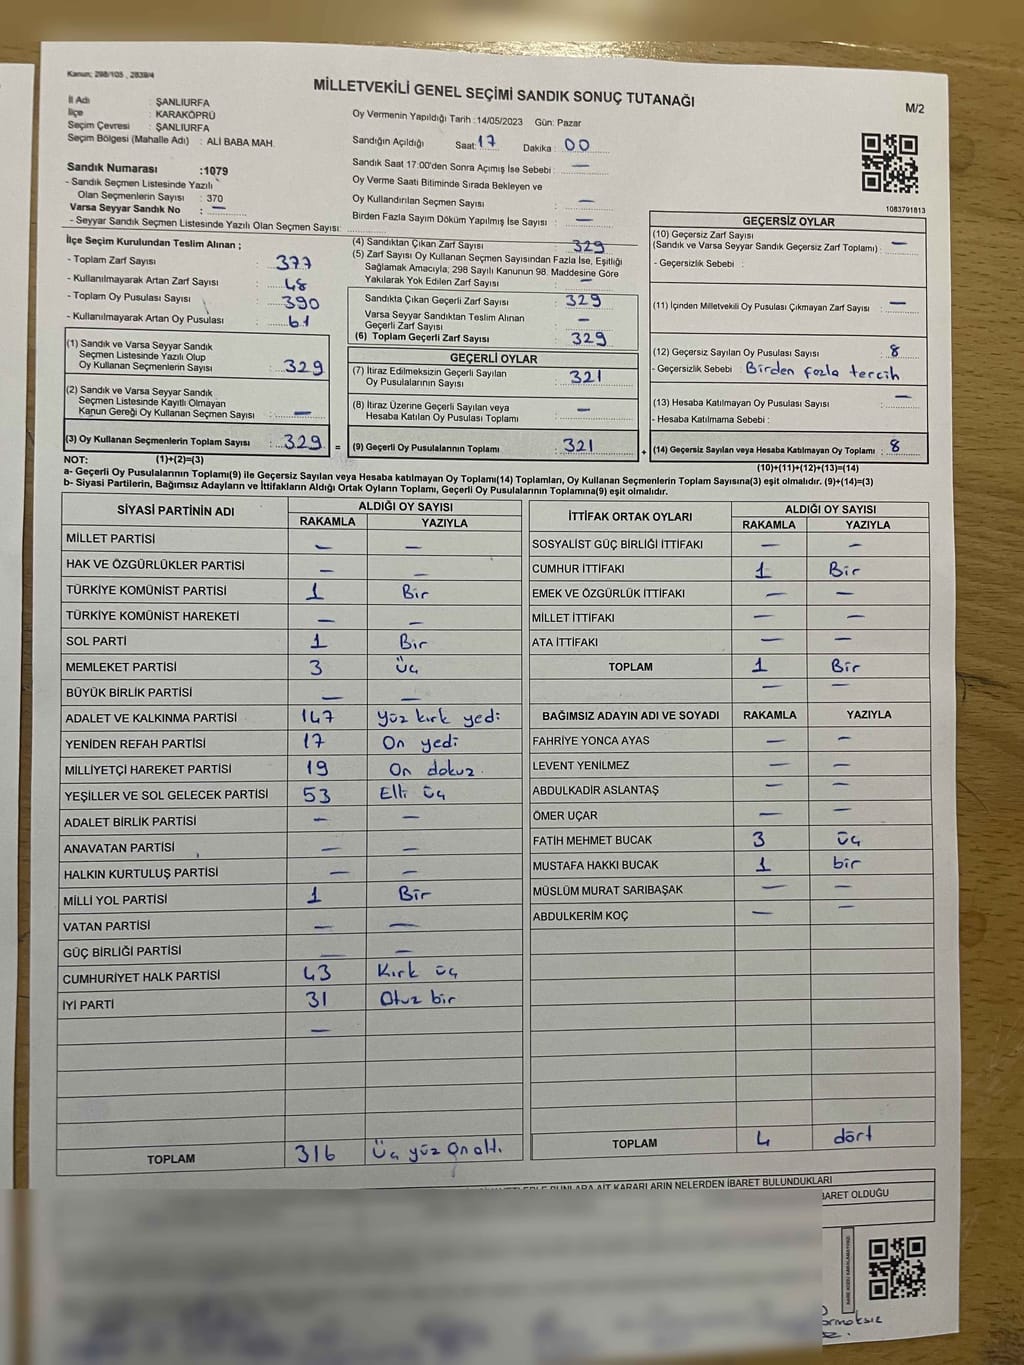 Kanun; 298/105 , 2839/4
MİLLETVEKİLİ GENEL SEÇİMİ SANDIK SONUÇ TUTANAĞI
M/2
İl Adı : ŞANLIURFA
İlçe : KARAKÖPRÜ
Seçim Çevresi : ŞANLIURFA
Seçim Bölgesi (Mahalle Adı) : ALİ BABA MAH.
Sandık Numarası :1079
- Sandık Seçmen Listesinde Yazılı
Olan Seçmenlerin Sayısı : 370
Varsa Seyyar Sandık No : —
- Seyyar Sandık Seçmen Listesinde Yazılı Olan Seçmen Sayısı:
Oy Vermenin Yapıldığı Tarih :14/05/2023 Gün: Pazar
Sandığın Açıldığı Saat: 17 Dakika : 00
Sandık Saat 17:00'den Sonra Açımış İse Sebebi : —
Oy Verme Saati Bitiminde Sırada Bekleyen ve
Oy Kullandırılan Seçmen Sayısı : —
Birden Fazla Sayım Döküm Yapılmış İse Sayısı : —
1083791813
İlçe Seçim Kurulundan Teslim Alınan ;
- Toplam Zarf Sayısı : 377
- Kullanılmayarak Artan Zarf Sayısı : 48
- Toplam Oy Pusulası Sayısı : 390
- Kullanılmayarak Artan Oy Pusulası : 61
(1) Sandık ve Varsa Seyyar Sandık
Seçmen Listesinde Yazılı Olup
Oy Kullanan Seçmenlerin Sayısı : 329
(2) Sandık ve Varsa Seyyar Sandık
Seçmen Listesinde Kayıtlı Olmayan
Kanun Gereği Oy Kullanan Seçmen Sayısı : —
(3) Oy Kullanan Seçmenlerin Toplam Sayısı : 329 =
(4) Sandıktan Çıkan Zarf Sayısı : 329
(5) Zarf Sayısı Oy Kullanan Seçmen Sayısından Fazla İse, Eşitliği
Sağlamak Amacıyla; 298 Sayılı Kanunun 98. Maddesine Göre
Yakılarak Yok Edilen Zarf Sayısı : —
Sandıkta Çıkan Geçerli Zarf Sayısı : 329
Varsa Seyyar Sandıktan Teslim Alınan
Geçerli Zarf Sayısı : —
(6) Toplam Geçerli Zarf Sayısı : 329
GEÇERLİ OYLAR
(7) İtiraz Edilmeksizin Geçerli Sayılan
Oy Pusulalarının Sayısı : 321
(8) İtiraz Üzerine Geçerli Sayılan veya
Hesaba Katılan Oy Pusulası Toplamı : —
(9) Geçerli Oy Pusulalarının Toplamı : 321 +
GEÇERSİZ OYLAR
(10) Geçersiz Zarf Sayısı
(Sandık ve Varsa Seyyar Sandık Geçersiz Zarf Toplamı) : —
- Geçersizlik Sebebi :
(11) İçinden Milletvekili Oy Pusulası Çıkmayan Zarf Sayısı : —
(12) Geçersiz Sayılan Oy Pusulası Sayısı : 8
- Geçersizlik Sebebi : Birden fazla tercih
(13) Hesaba Katılmayan Oy Pusulası Sayısı : —
- Hesaba Katılmama Sebebi :
(14) Geçersiz Sayılan veya Hesaba Katılmayan Oy Toplamı : 8
NOT: (1)+(2)=(3)
(10)+(11)+(12)+(13)=(14)
a- Geçerli Oy Pusulalarının Toplamı(9) ile Geçersiz Sayılan veya Hesaba katılmayan Oy Toplamı(14) Toplamları, Oy Kullanan Seçmenlerin Toplam Sayısına(3) eşit olmalıdır. (9)+(14)=(3)
b- Siyasi Partilerin, Bağımsız Adayların ve İttifakların Aldığı Ortak Oyların Toplamı, Geçerli Oy Pusulalarının Toplamına(9) eşit olmalıdır.
SİYASİ PARTİNİN ADI ALDIĞI OY SAYISI
RAKAMLA YAZIYLA
MİLLET PARTİSİ — —
HAK VE ÖZGÜRLÜKLER PARTİSİ — —
TÜRKİYE KOMÜNİST PARTİSİ 1 Bir
TÜRKİYE KOMÜNİST HAREKETİ — —
SOL PARTİ 1 Bir
MEMLEKET PARTİSİ 3 Üç
BÜYÜK BİRLİK PARTİSİ — —
ADALET VE KALKINMA PARTİSİ 147 Yüz kırk yedi
YENİDEN REFAH PARTİSİ 17 On yedi
MİLLİYETÇİ HAREKET PARTİSİ 19 On dokuz
YEŞİLLER VE SOL GELECEK PARTİSİ 53 Elli üç
ADALET BİRLİK PARTİSİ — —
ANAVATAN PARTİSİ — —
HALKIN KURTULUŞ PARTİSİ — —
MİLLİ YOL PARTİSİ 1 Bir
VATAN PARTİSİ — —
GÜÇ BİRLİĞİ PARTİSİ — —
CUMHURİYET HALK PARTİSİ 43 Kırk üç
İYİ PARTİ 31 Otuz bir
—
TOPLAM 316 Üç yüz On altı
İTTİFAK ORTAK OYLARI ALDIĞI OY SAYISI
RAKAMLA YAZIYLA
SOSYALİST GÜÇ BİRLİĞİ İTTİFAKI — —
CUMHUR İTTİFAKI 1 Bir
EMEK VE ÖZGÜRLÜK İTTİFAKI — —
MİLLET İTTİFAKI — —
ATA İTTİFAKI — —
TOPLAM 1 Bir
— —
BAĞIMSIZ ADAYIN ADI VE SOYADI RAKAMLA YAZIYLA
FAHRİYE YONCA AYAS — —
LEVENT YENİLMEZ — —
ABDULKADİR ASLANTAŞ — —
ÖMER UÇAR — —
FATİH MEHMET BUCAK 3 üç
MUSTAFA HAKKI BUCAK 1 bir
MÜSLÜM MURAT SARIBAŞAK — —
ABDULKERİM KOÇ — —
TOPLAM 4 dört
BUNLARA AİT KARARLARIN NELERDEN İBARET BULUNDUKLARI
İBARET OLDUĞU